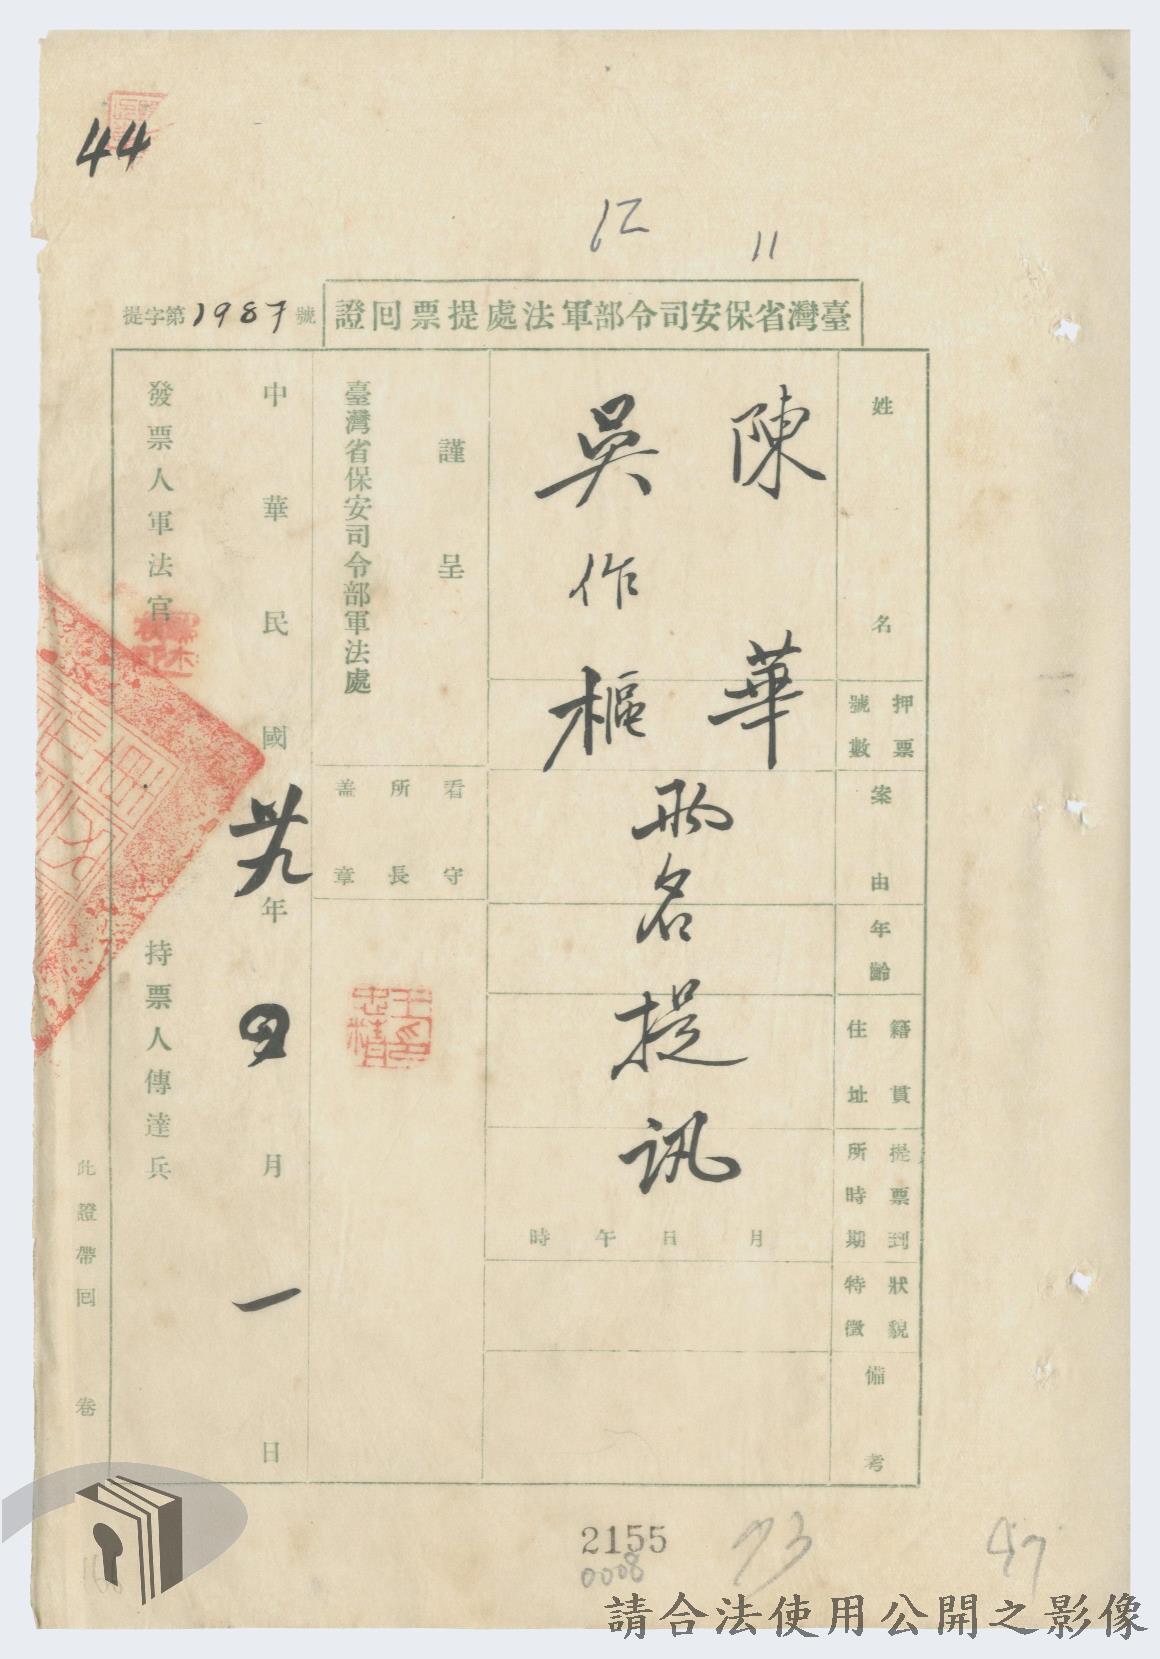 44
仁
11
臺灣省保安司令部軍法處提票回證
提字第1987號
姓名
押票號數
案由
年齡
籍貫住址
提票到所時期
狀貌特徵
備考
陳華
吳作樞
兩名提訊
月日午時
謹呈
臺灣省保安司令部軍法處
看守所長盖章
中華民國卅九年四月一日
發票人軍法官
持票人傳達兵
此證帶回卷
2155
0008
93
47
請合法使用公開之影像